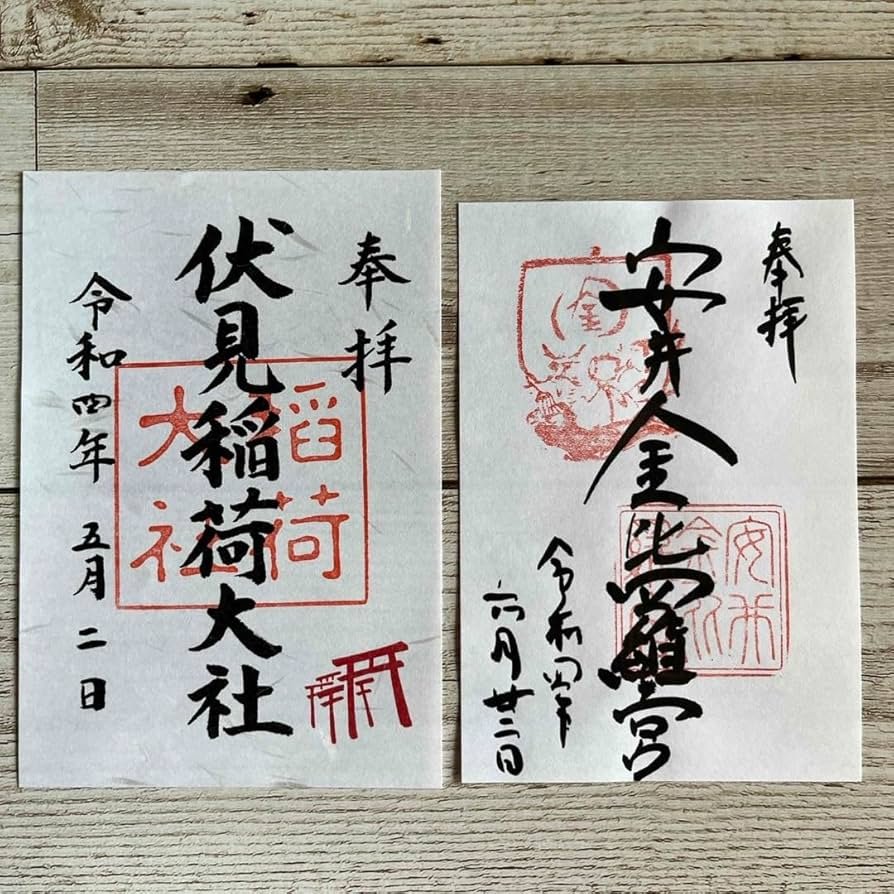 奉拝
伏見稲荷大社
稲荷
大社
令和四年 五月二日
奉拝
安井金比羅宮
金
安井
令和四年
六月廿二日